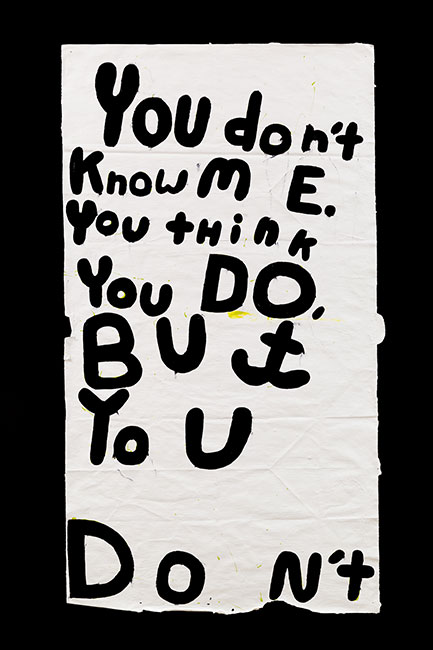 You don't
Know M E.
You tHink
You DO,
BUt
Yo U
Do N't